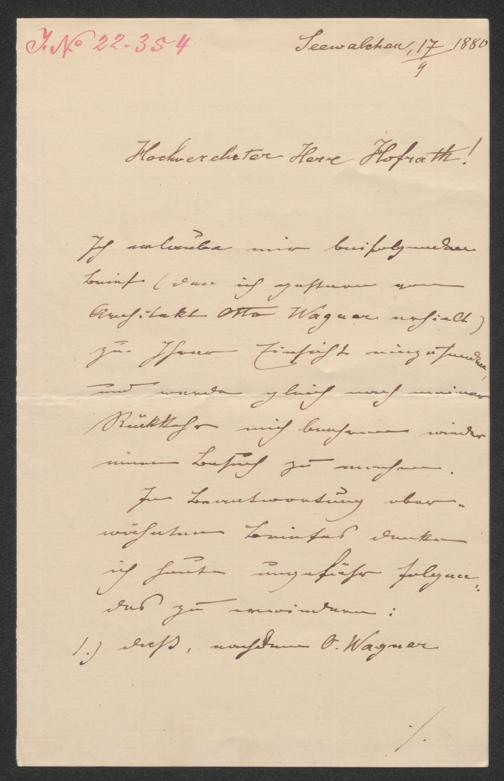 J. No 22.354
Seewalchen, 17/9 1880
Hochverehrter Herr Hofrath!
Ich erlaube mir beifolgenden
Brief (den ich gestern vom
Architekt Otto Wagner erhielt)
zur Ihrer Einsicht einzusenden,
und werde gleich nach meiner
Rückkehr mich beehren wieder
einen Besuch zu machen.
In Beantwortung ober-
wähnten Briefes denke
ich heute ungefähr folgen-
des zu erwiedern:
1.) daß, nachdem O. Wagner
./.